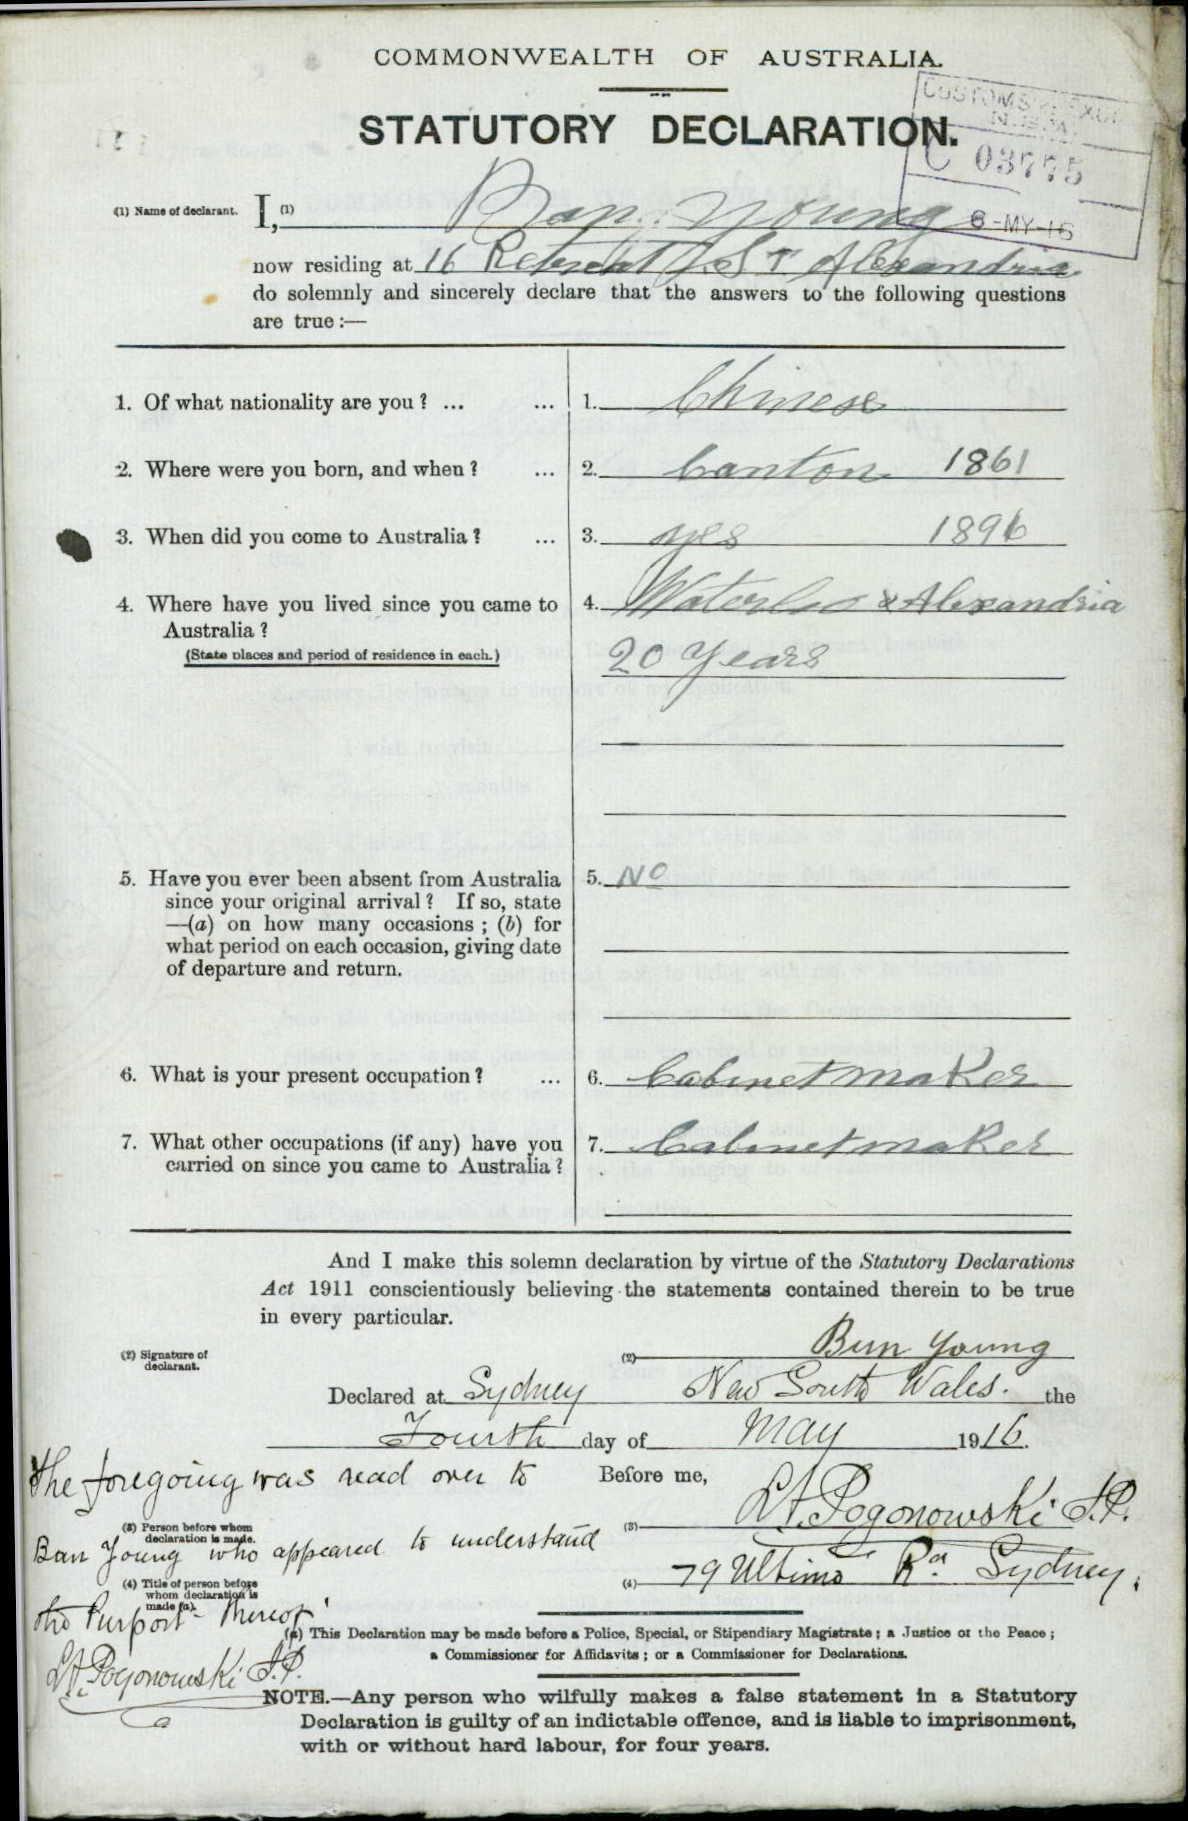 COMMONWEALTH OF AUSTRALIA.
STATUTORY DECLARATION.
CUSTOMS & EXCISE
N.S.W.
C 03775
8-MY-16
(1) Name of declarant. I, (1) Ban Young
now residing at 16 Retreat St Alexandria
do solemnly and sincerely declare that the answers to the following questions
are true:—
1. Of what nationality are you? ... ... 1. Chinese
2. Where were you born, and when? ... 2. Canton 1861
3. When did you come to Australia? ... 3. yes 1896
4. Where have you lived since you came to 4. Waterloo & Alexandria
Australia?
(State places and period of residence in each.) 20 Years
5. Have you ever been absent from Australia 5. No
since your original arrival? If so, state
—(a) on how many occasions; (b) for
what period on each occasion, giving date
of departure and return.
6. What is your present occupation? ... 6. Cabinetmaker
7. What other occupations (if any) have you 7. Cabinetmaker
carried on since you came to Australia?
And I make this solemn declaration by virtue of the Statutory Declarations
Act 1911 conscientiously believing the statements contained therein to be true
in every particular.
(2) Signature of declarant. (2) Bun Young
Declared at Sydney New South Wales. the
Fourth day of May 1916.
The foregoing was read over to
Before me,
(3) Person before whom
declaration is made.
(3) L.A. Pogonowski J.P.
Ban Young who appeared to understand
(4) Title of person before
whom declaration is
made (a).
(4) 79 Ultimo Rd Sydney.
the Purport thereof
L.A. Pogonowski J.P.
(a) This Declaration may be made before a Police, Special, or Stipendiary Magistrate; a Justice of the Peace;
a Commissioner for Affidavits; or a Commissioner for Declarations.
NOTE.—Any person who wilfully makes a false statement in a Statutory
Declaration is guilty of an indictable offence, and is liable to imprisonment,
with or without hard labour, for four years.